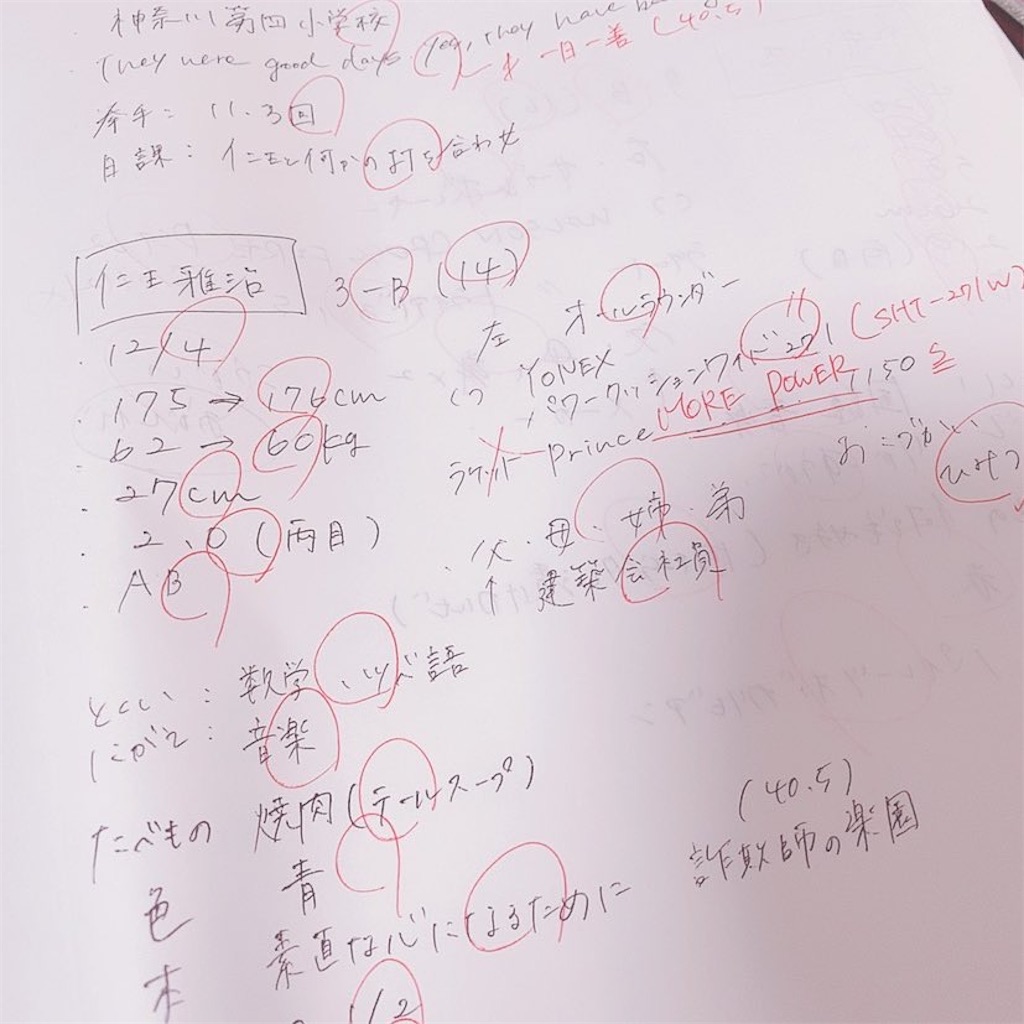 神奈川第四小学校
They were good days
Yes, they have be
一日一善 (40.5)
挙手: 11.3回
日課: 仁王と何かの打ち合わせ
仁王雅治 3-B (14)
12/4
左 オールラウンダー
175→176cm
YONEX
パワークッションワイド271 (SHT-271W)
62→60kg
ラケット Prince MORE POWER 1150
27cm
おこづかい ひみつ
2.0(両目)
父・母・姉・弟
AB
↑建築会社員
とくい: 数学、ツバ語
にがて: 音楽
たべもの 焼肉(テールスープ)
色 青
(40.5)
本 素直な心になるために 詐欺師の楽園
1/2